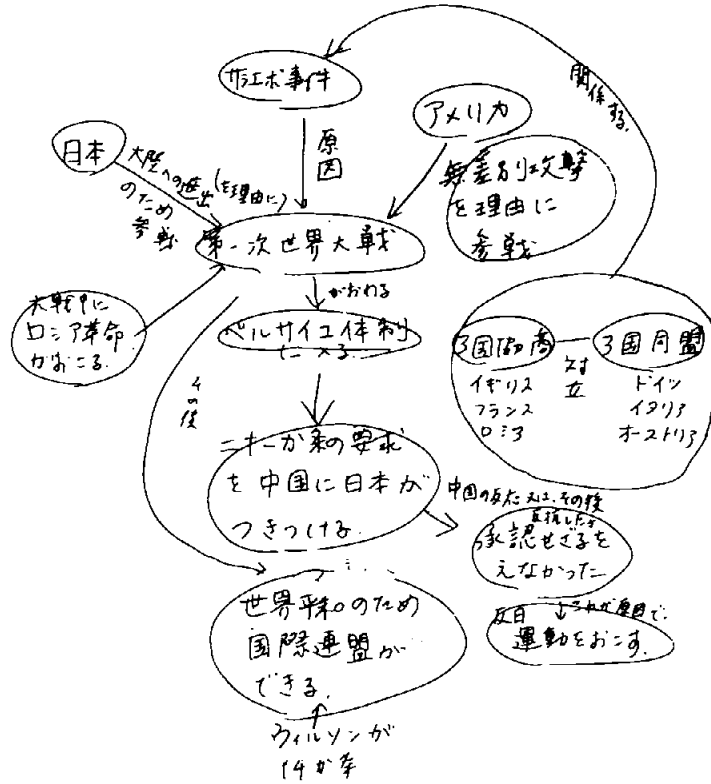 サラエボ事件
関係する.
原因
アメリカ
日本
大陸への進出(を理由に)
のため
参戦
無差別攻撃
を理由に
参戦
第一次世界大戦
大戦中に
ロシア革命
がおこる.
がおわる
ベルサイユ体制
その後
3国協商
対立
3国同盟
イギリス
フランス
ロシア
ドイツ
イタリア
オーストリア
二十一か条の要求
を中国に日本が
つきつける.
中国の反応
その後
承認せざるを
えなかった
反日
↓これが原因で、
運動をおこす.
世界平和のため
国際連盟が
できる.
ウィルソンが
14か条